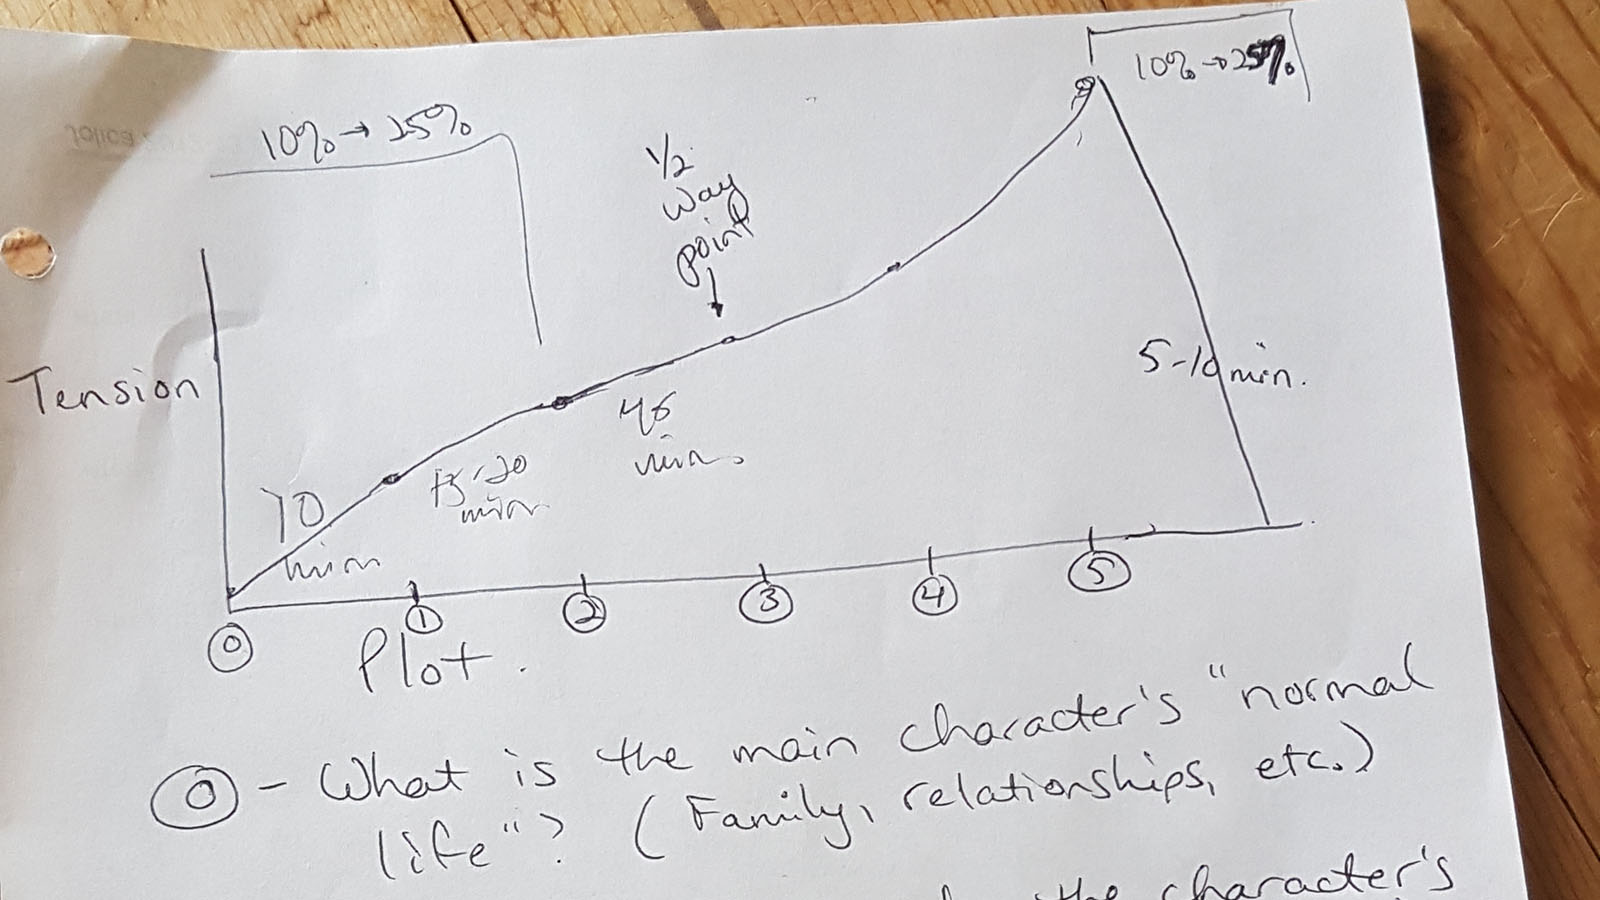 10% → 25%
10% → 25%
1/2
way
point
Tension
10
min
15-20
min
45
min.
5-10 min.
0
1
2
3
4
5
Plot.
0 - What is the main character's "normal
life"? (Family, relationships, etc.)
the character's